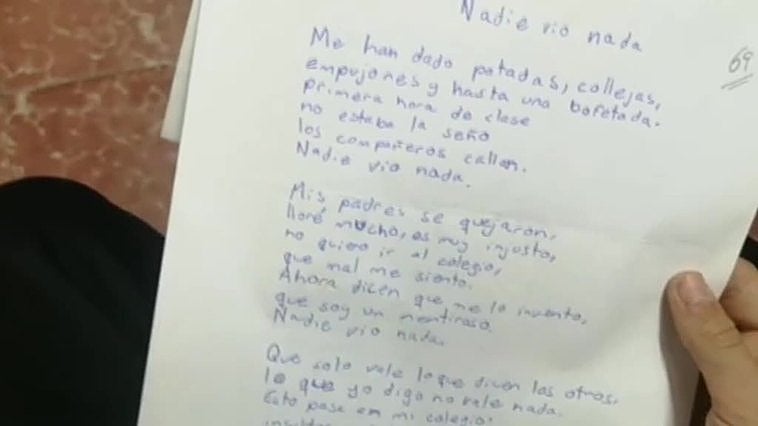 Nadie vio nada
69
Me han dado patadas, collejas,
empujones y hasta una bofetada.
primera hora de clase
no estaba la seño
los compañeros callan.
Nadie vio nada.
Mis padres se quejaron,
lloré mucho, es muy injusto,
no quiero ir al colegio,
que mal me siento.
Ahora dicen que me lo invento,
que soy un mentiroso.
Nadie vio nada.
Que solo vale lo que dicen los otros,
lo que yo digo no vale nada.
Esto pasa em mi colegio: